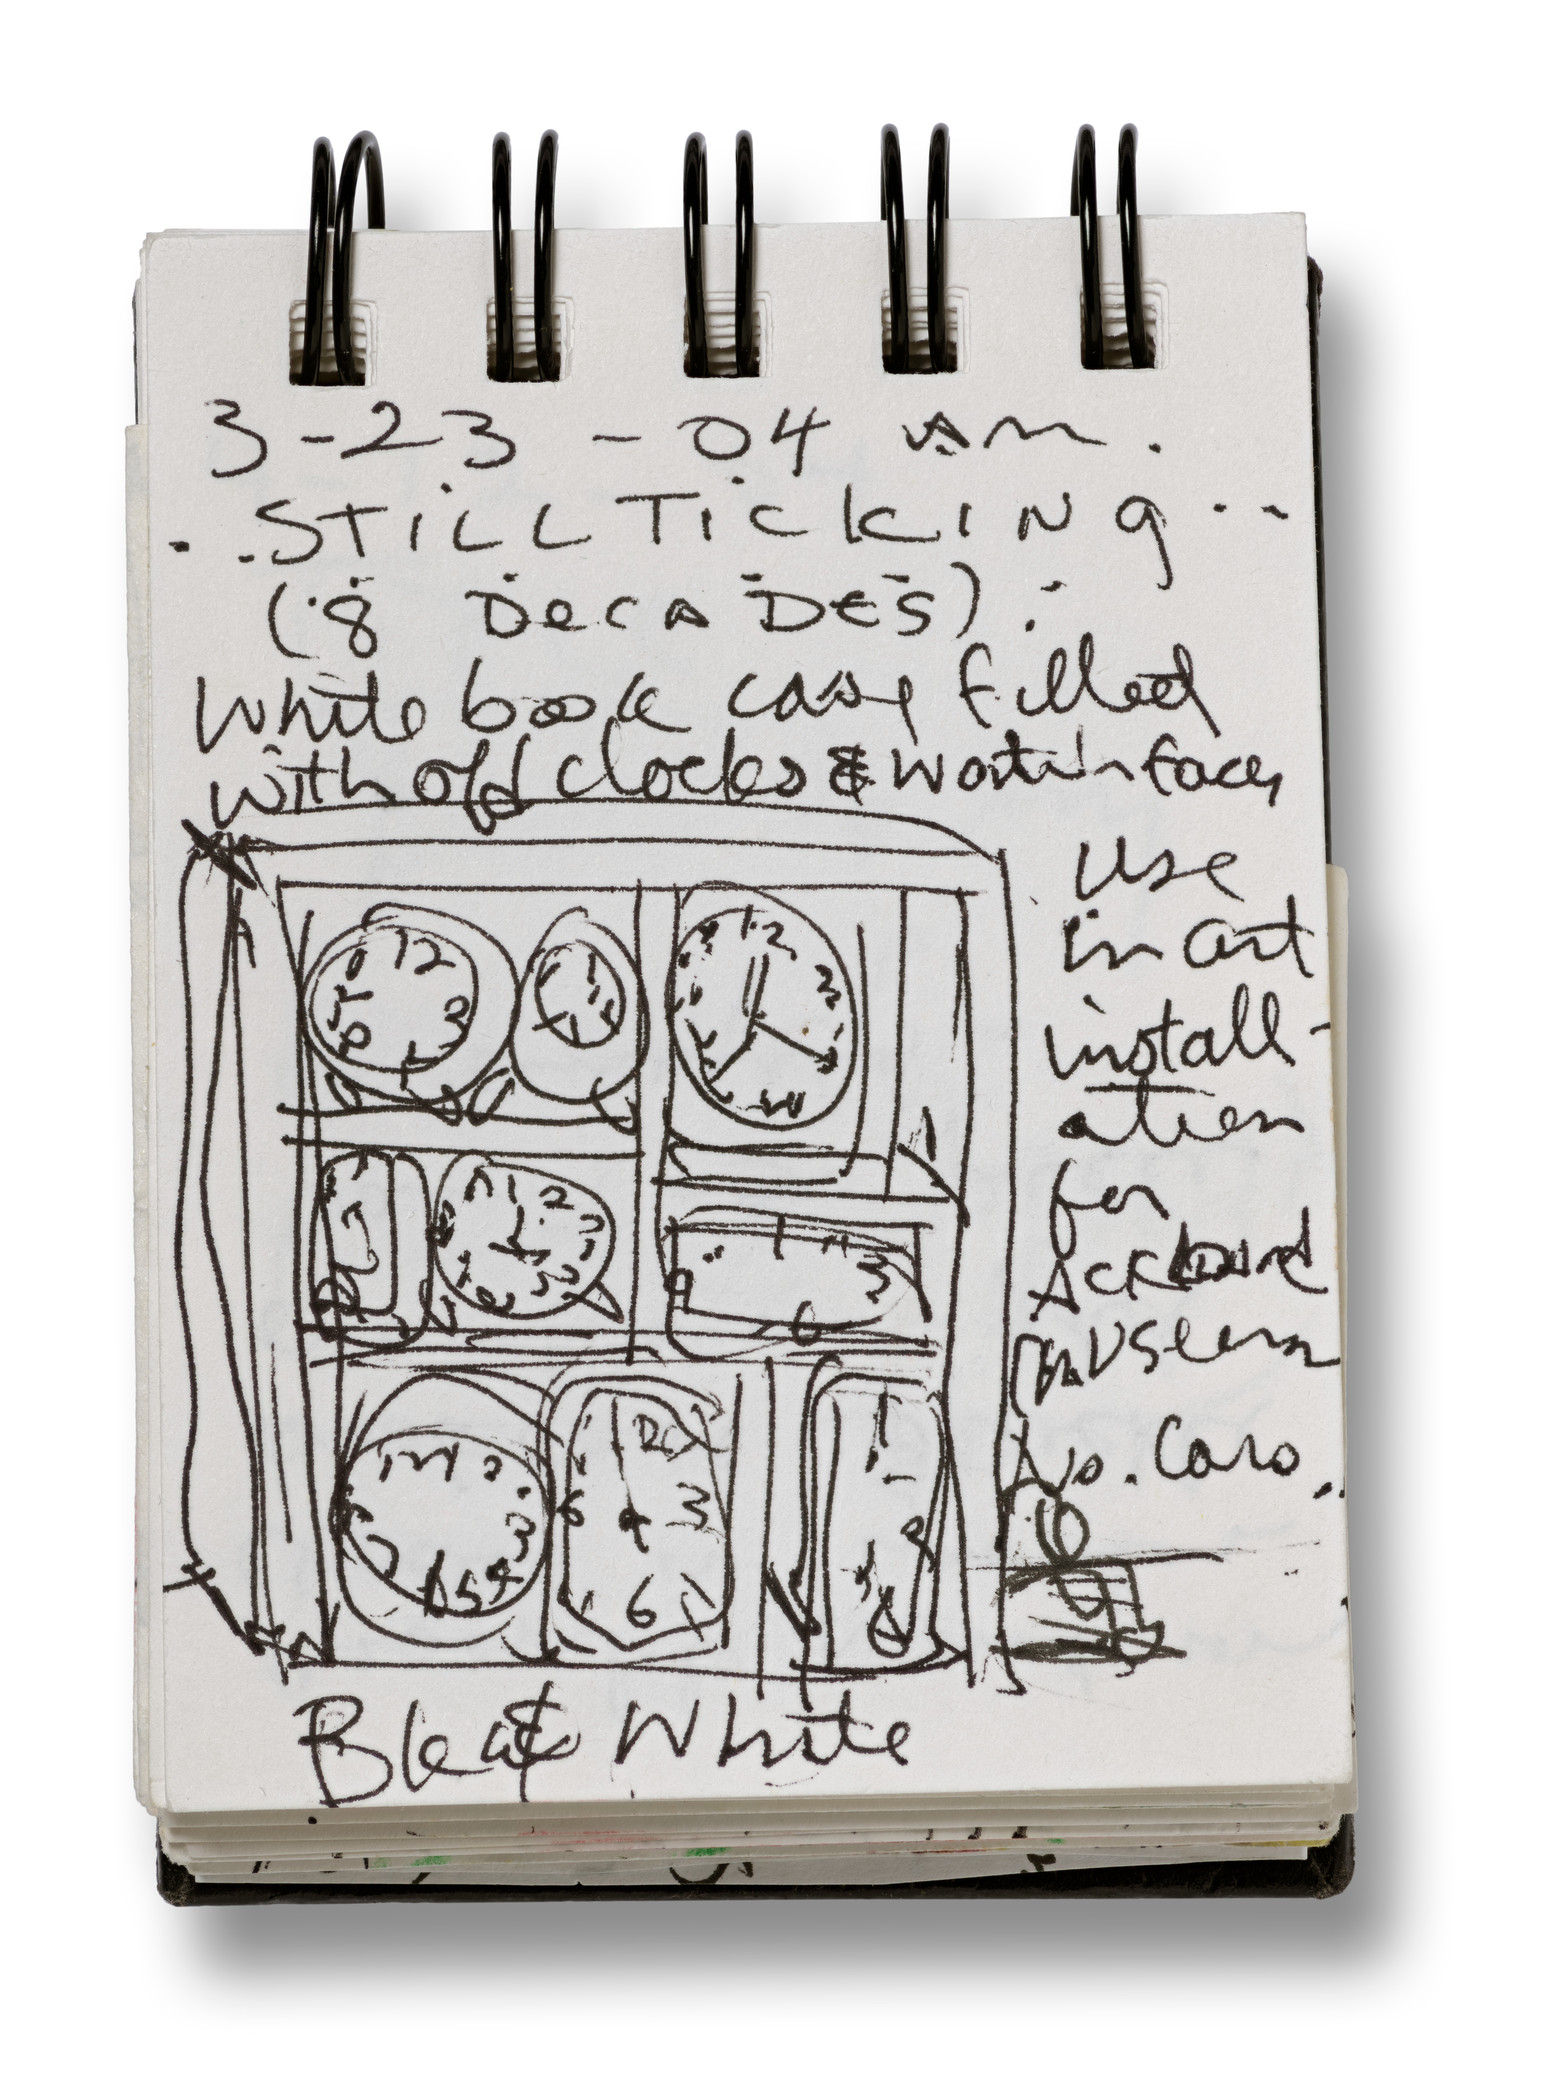 3-23-04 am.
..STiLL TiCKING..
(8 DeCADES).
White book case filled
with old clocks & watch faces
Use
in art
install-
ation
for
Ackland
Museum
No. Caro.
12
3
12
3
12
3
6
12
3
6
Black White